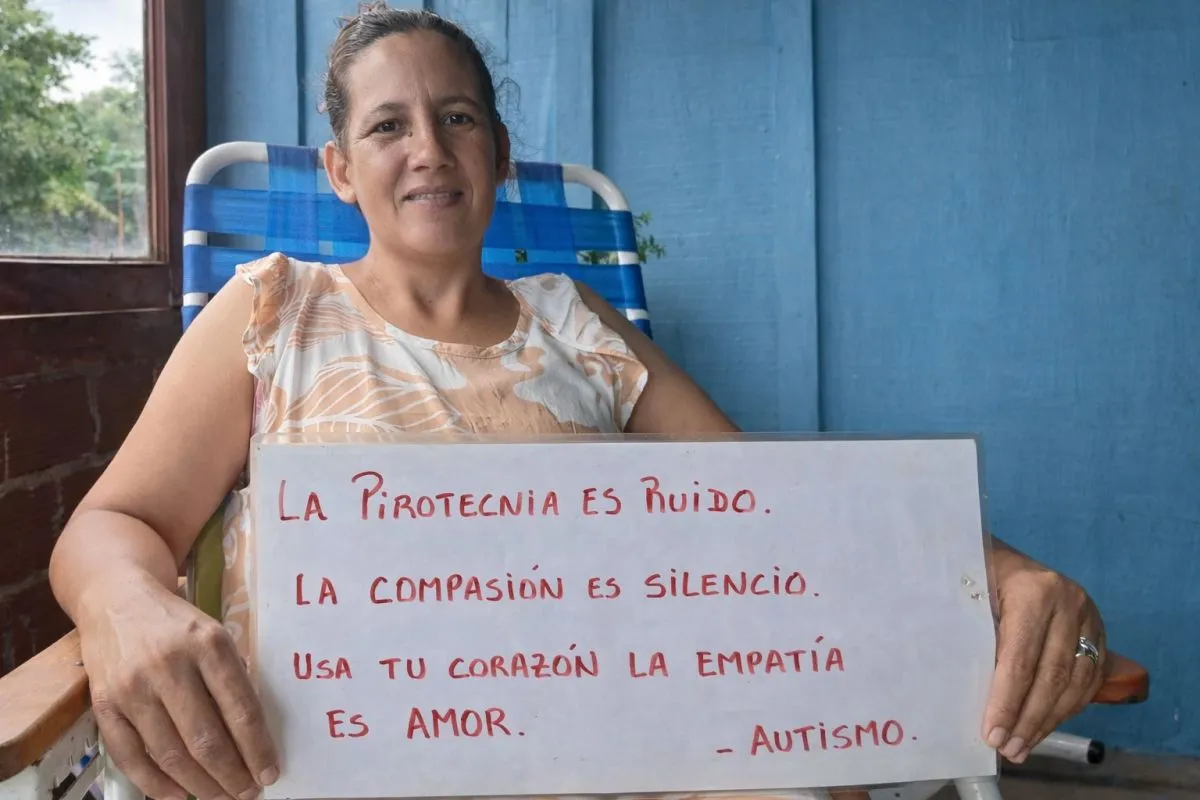 LA PIROTECNIA ES RUIDO.
LA COMPASIÓN ES SILENCIO.
USA TU CORAZÓN LA EMPATÍA
ES AMOR.
- AUTISMO.